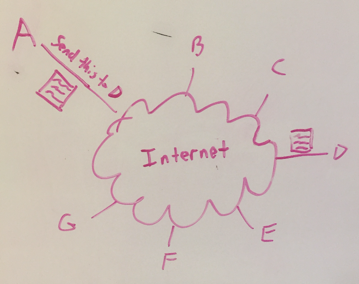 A
Send this to D
B
C
Internet
D
G
F
E